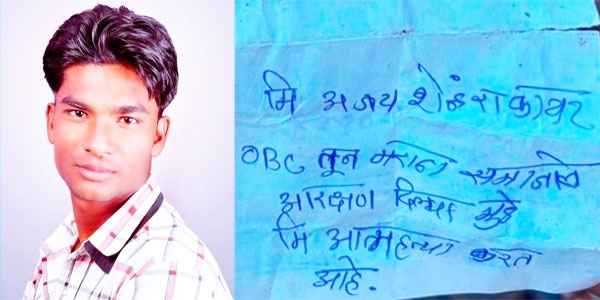 मि अजय शेंद्रे
OBC तून मराठा समाजाले
आरक्षण दिल्या मुळे
मि आत्महत्या करत
आहे.